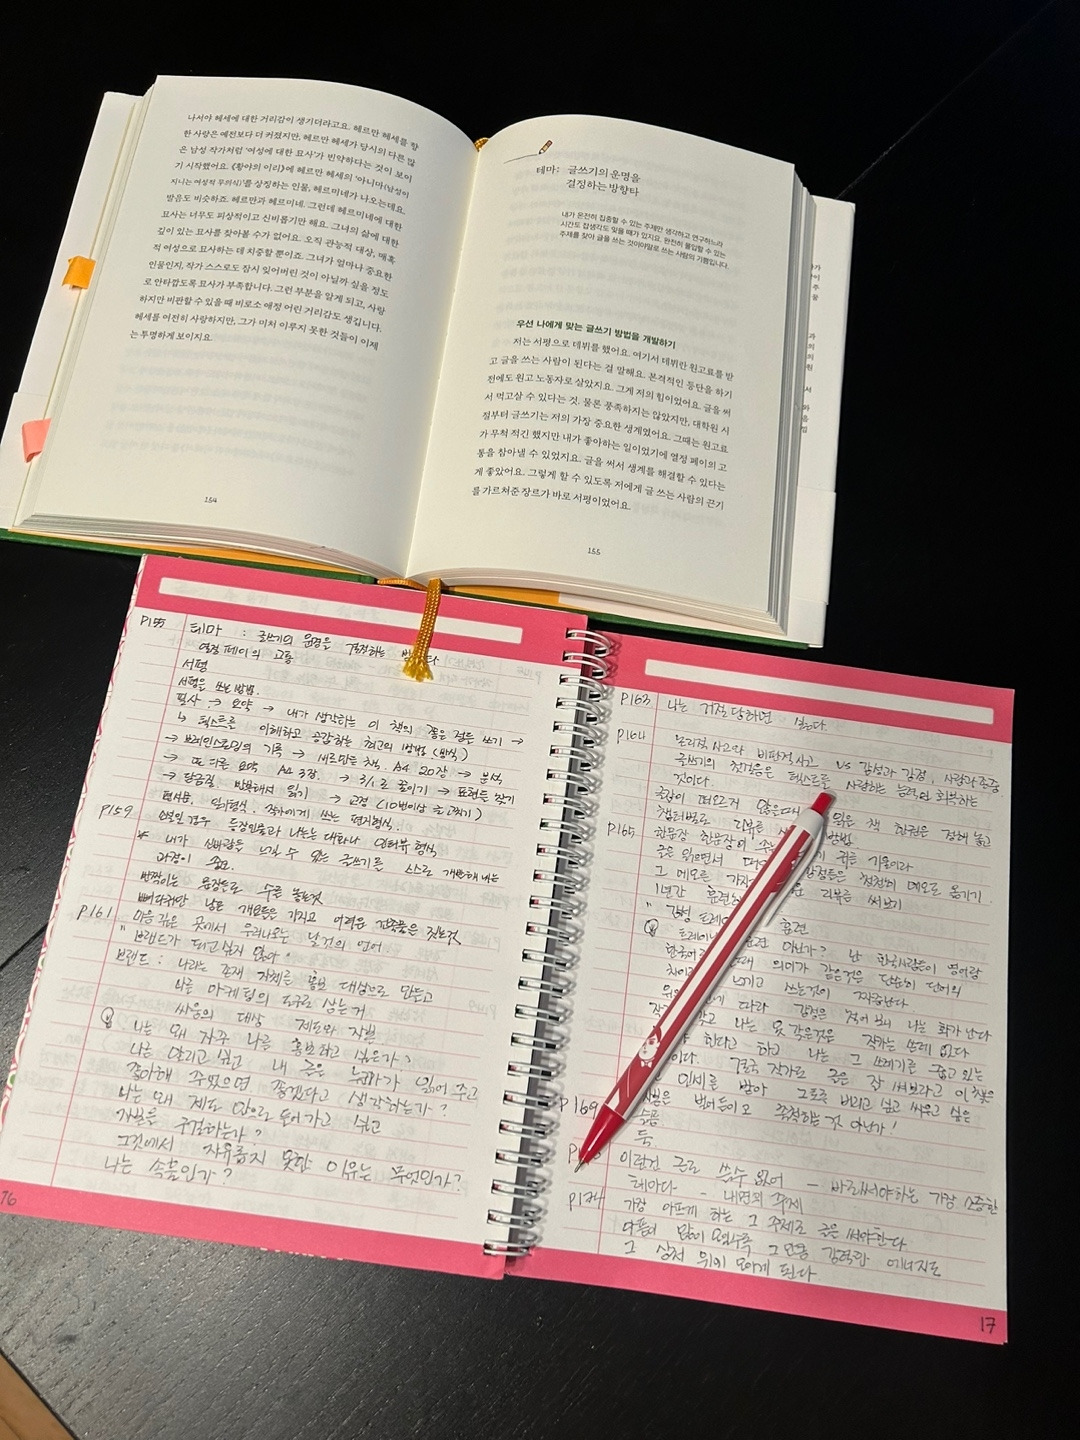 나서야 헤세에 대한 거리감이 생기더라고요. 헤르만 헤세를 향
한 사랑은 예전보다 더 커졌지만, 헤르만 헤세가 당시의 다른 많
은 남성 작가처럼 '여성에 대한 묘사'가 빈약하다는 것이 보이
기 시작했어요. 《황야의 이리》에 헤르만 헤세의 '아니마(남성이
지니는 여성적 무의식)'를 상징하는 인물, 헤르미네가 나오는데요.
발음도 비슷하죠. 헤르만과 헤르미네. 그런데 헤르미네에 대한
묘사는 너무도 피상적이고 신비롭기만 해요. 그녀의 삶에 대한
깊이 있는 묘사를 찾아볼 수가 없어요. 오직 관능적 대상, 매혹
적 여성으로 묘사하는 데 치중할 뿐이죠. 그녀가 얼마나 중요한
인물인지, 작가 스스로도 잠시 잊어버린 것이 아닐까 싶을 정도
로 안타깝도록 묘사가 부족합니다. 그런 부분을 알게 되고, 사랑
하지만 비판할 수 있을 때 비로소 애정 어린 거리감도 생깁니다.
헤세를 여전히 사랑하지만, 그가 미처 이루지 못한 것들이 이제
는 투명하게 보이지요.
154
테마: 글쓰기의 운명을
결정하는 방향타
내가 온전히 집중할 수 있는 주제만 생각하고 연구하느라
시간도 잡생각도 잊을 때가 있지요. 완전히 몰입할 수 있는
주제를 찾아 글을 쓰는 것이야말로 쓰는 사람의 기쁨입니다.
우선 나에게 맞는 글쓰기 방법을 개발하기
저는 서평으로 데뷔를 했어요. 여기서 데뷔란 원고료를 받
고 글을 쓰는 사람이 된다는 걸 말해요. 본격적인 등단을 하기
전에도 원고 노동자로 살았지요. 그게 저의 힘이었어요. 글을 써
서 먹고살 수 있다는 것. 물론 풍족하지는 않았지만, 대학원 시
절부터 글쓰기는 저의 가장 중요한 생계였어요. 그때는 원고료
가 무척 적긴 했지만 내가 좋아하는 일이었기에 열정 페이의 고
통을 참아낼 수 있었지요. 글을 써서 생계를 해결할 수 있다는
게 좋았어요. 그렇게 할 수 있도록 저에게 글 쓰는 사람의 끈기
를 가르쳐준 장르가 바로 서평이었어요.
155
P155 테마 : 글쓰기의 운명을 결정하는
열정 페이의 고통
서평
서평을 쓰는 방법.
필사 → 요약 → 내가 생각하는 이 책의 좋은 점을 쓰기 →
↳ 텍스트를 이해하고 공감하는 최고의 방법 (방식)
→ 브레인스토밍의 기록 → 새로만든 책. A4 20장 → 분석
→ 또 다른 요약 A4 3장. → 3/1로 줄이기 → 표현들 찾기
→ 담금질. 반복해서 읽기 → 교정 (10번이상 글고치기)
편지형식.
P159 소설일 경우 등장인물과 나누는 대화나 인터뷰 형식
* 내가 신바람을 느낄 수 있는 글쓰기를 스스로 개발해내는
과정이 중요.
반짝이는 문장들로 수를 놓은것
P161 마음 깊은 곳에서 우러나오는 날것의 언어
" 브랜드가 되고 싶지 않아"
브랜드 : 나라는 존재 자체를 홍보 대상으로 만들고
나를 마케팅의 도구로 삼는거
싸움의 대상 제도와 자본
나는 왜 자꾸 나를 홍보하고 싶은가?
나는 알리고 싶고 내 글은 누군가가 읽어 주고
좋아해 주었으면 좋겠다고 생각하는가?
나는 왜 제도 안으로 들어가고 싶고
자본을 구걸하는가?
그것에서 자유롭지 못한 이유는 무엇인가?
나는 속물인가?
76
P163 나는 거절당하면
P164 논리적 사고와 비판적 사고 vs 감성과 감정, 사랑과 존중.
글쓰기의 첫걸음은 텍스트를 사랑하는 능력을 회복하는
것이다.
읽은 책 한권을 정해 놓고
챕터별로 리뷰를 방법
P165 한문장 한문장이 귀를 기울이라
감정들은 천천히 메모로 옮기기.
그 메모를 가지 리뷰를 써보기
1년간 훈련
훈련
아닌가? 난 한국사람들이 영어랑
의미가 같은것은 단순히 단어의
쓰는것이 짜증난다
따라 감정을 적어 보니 나는 화가 난다
나는 똑 같은것은
한다고 하고 나는 그 쓰레기를 줍고 있는
결국 작가로 글은 잘 써보라고 이 책은
인세를 받아
P169 벗어들이오 목적하는 것 아닌가!
슬픔
이런건 글로 쓸수 없어 - 바로써야하는 가장 소중한
P174 테마다 - 내면의 주제
가장 아프게 하는 그 주제로 글을 써야한다
아픔이 많이 모일수록 그 모든 감각과 에너지도
그 상처 위에 모이게 된다
17